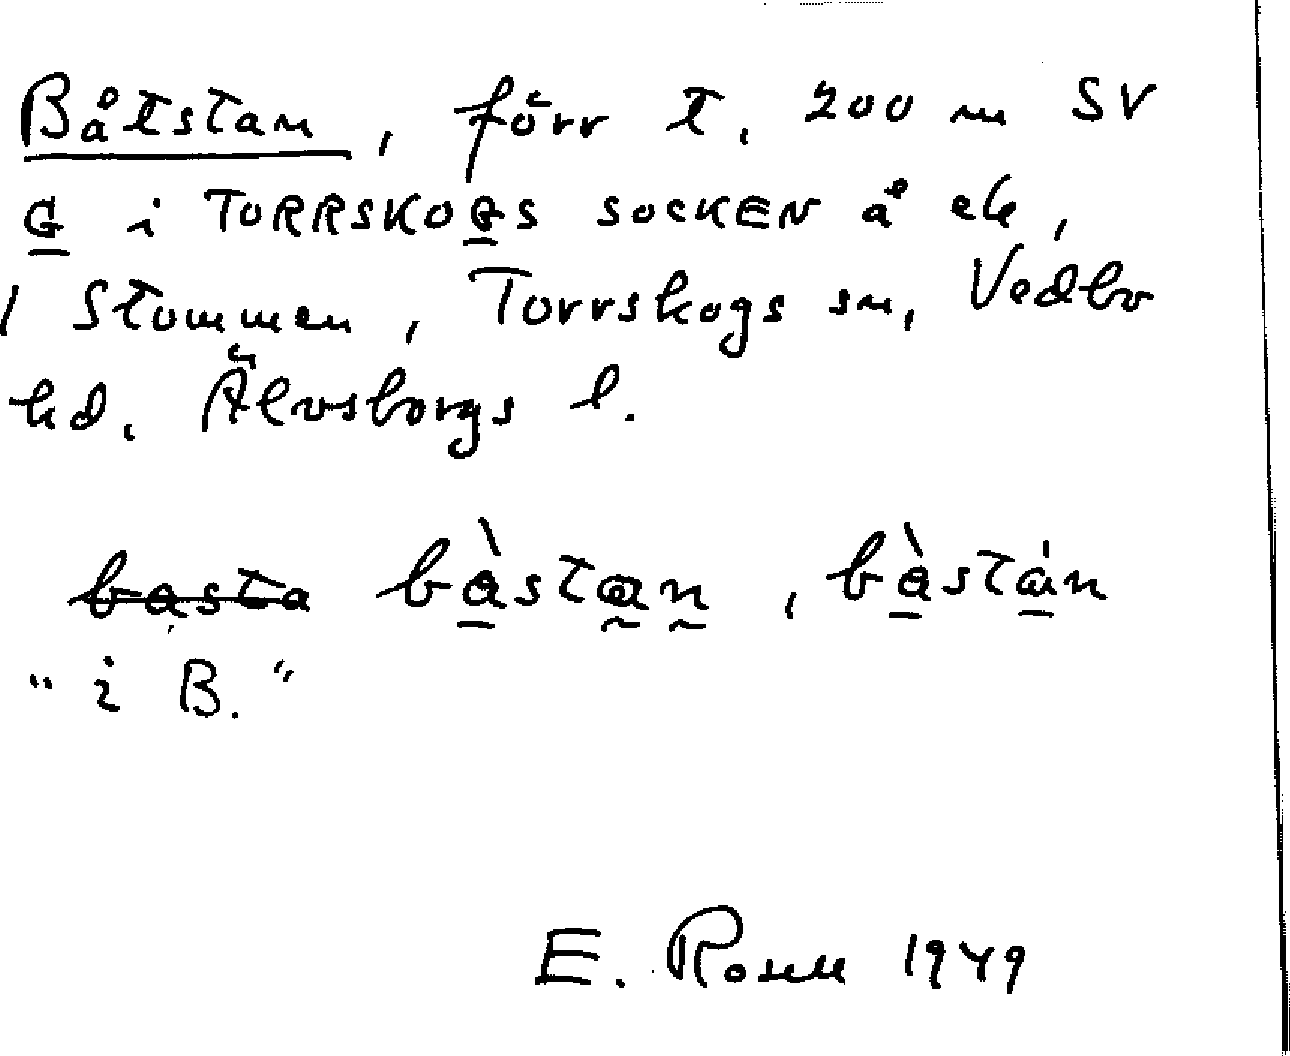 Båtstan, förr t. 200 m SV
G i TORRSKOGS SOCKEN å ek,
/ Stommen, Torrskogs sn, Vedbo
hd. Älvsborgs l.
basta bàstan, bàstán
"i B."
E. Rosell 1949